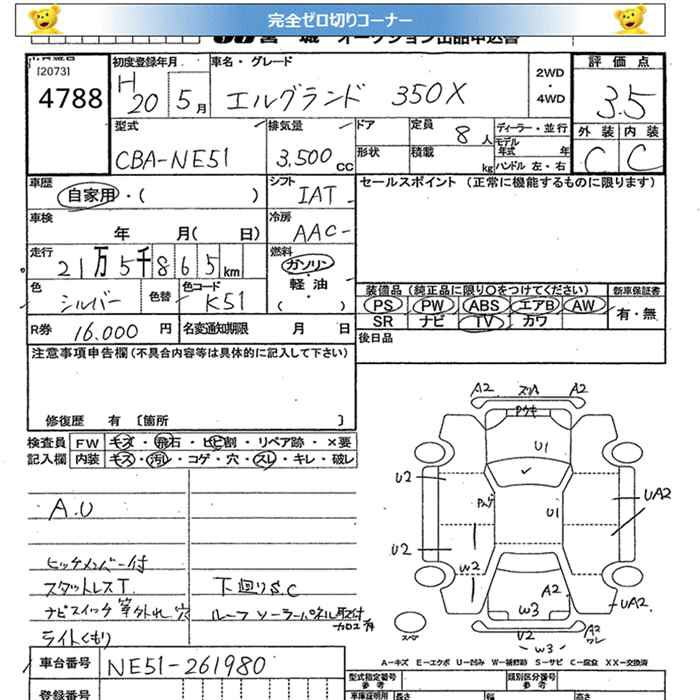 完全ゼロ切りコーナー
宮城 オークション出品申込書
[2073]
4788
初度登録年月
H 20 5月
車名・グレード
エルグランド 350X
2WD・4WD
評価点
3.5
外装 内装
C C
型式
CBA-NE51
排気量
3.500cc
ドア
形状
定員
8人
積載 kg
ディーラー・並行
モデル年式 年
ハンドル 左・右
車歴
自家用・( )
シフト
IAT
セールスポイント (正常に機能するものに限ります)
車検
年 月( 日)
冷房
AAC
走行
21万5千865km
燃料
ガソリン・軽油・( )
色
シルバー
色替
色コード
K51
装備品(純正品に限り○をつけてください)
PS PW ABS エアB AW
SR ナビ TV カワ
新車保証書
有・無
R券 16.000円
名変通知期限 月 日
後日品
注意事項申告欄(不具合内容等は具体的に記入して下さい)
修復歴 有 [箇所 ]
検査員記入欄
FW キズ・飛石・ヒビ割・リペア跡・×要
内装 キズ・汚れ・コゲ・穴・スレ・キレ・破レ
A.U
ヒッチメンバー付
スタットレスT.
ナビスイッチ等外れ、穴
ライトくもり
下廻りS.C
ルーフ ソーラーパネル取付
A2 ズリA A2
Pウキ
U1
U2
Pハゲ
U1
UA2
U2
W2
A2
W3
UA2
スペア
U2
A2 ワレ
W3
A-キズ E-エクボ U-凹み W-補修跡 S-サビ C-腐食 XX-交換済
車台番号 NE51-261980
登録番号
型式指定番号
参考
類別区分番号
参考
車庫証明用
長さ
幅
高さ